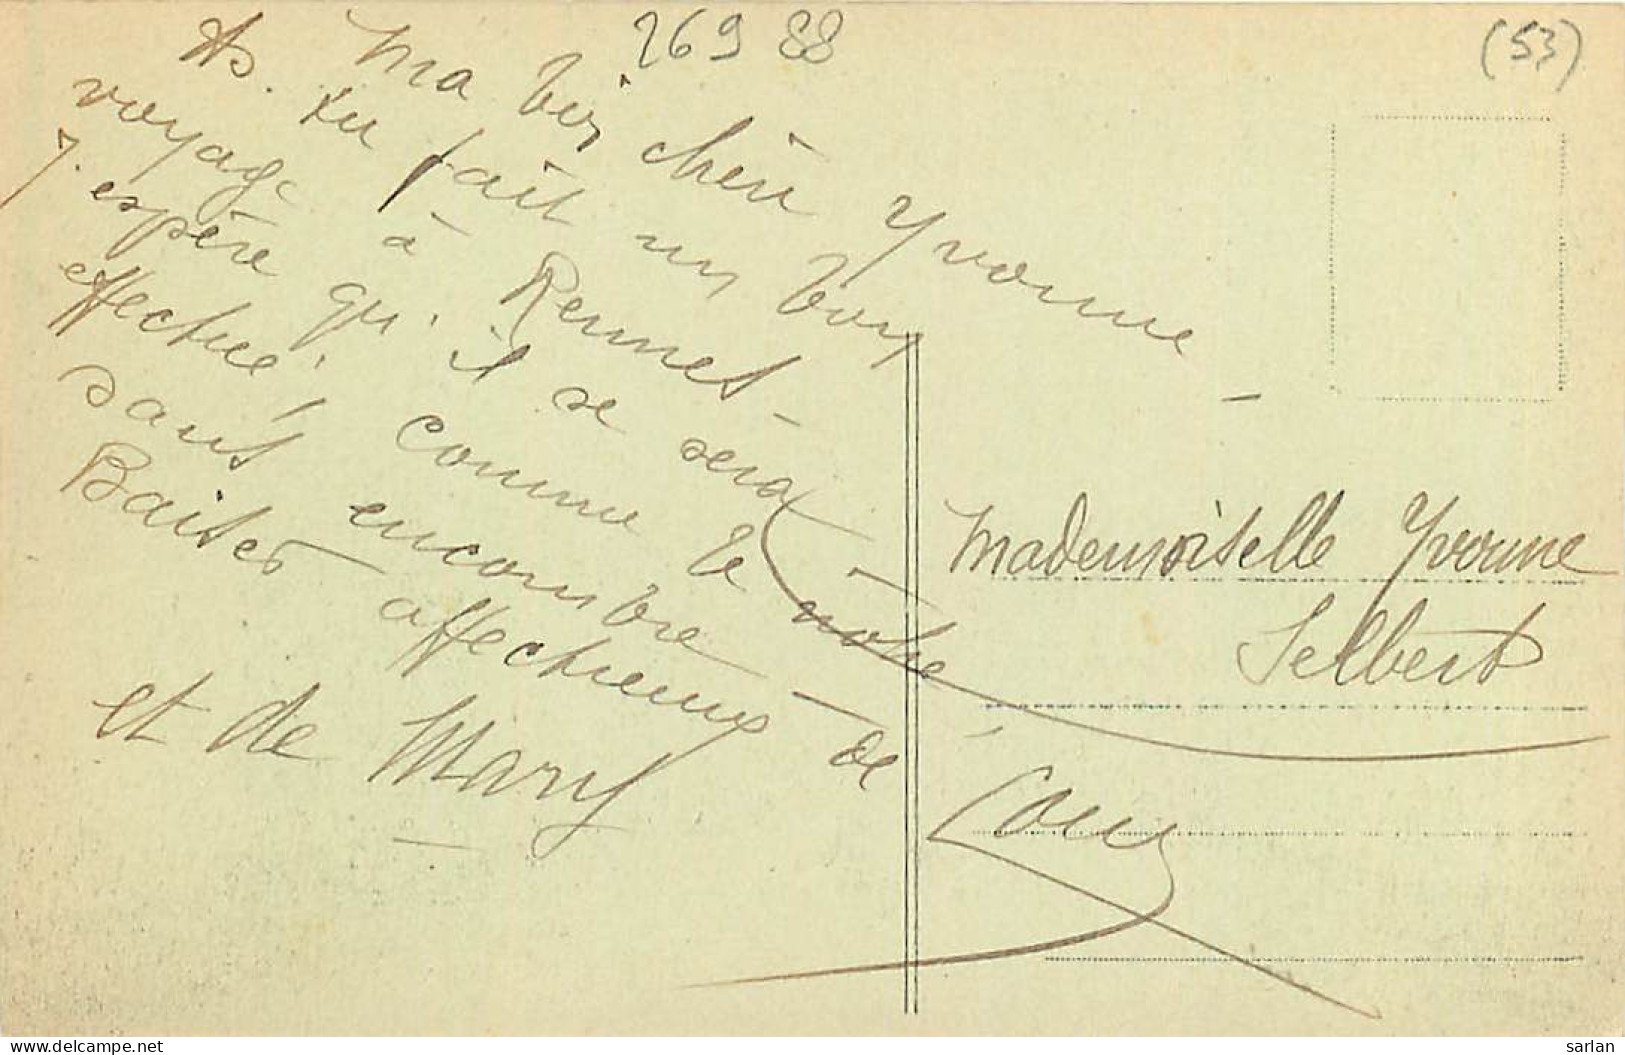 26988
(53)
Ma bien chère Yvonne
As. tu fait un bon
voyage à Rennes
J. espère qu. il se sera
effectué comme le notre
sans encombre
Baisers affectueux de
et de Mary
Mademoiselle Yvonne
Selbert
www.delcampe.net
sarlan